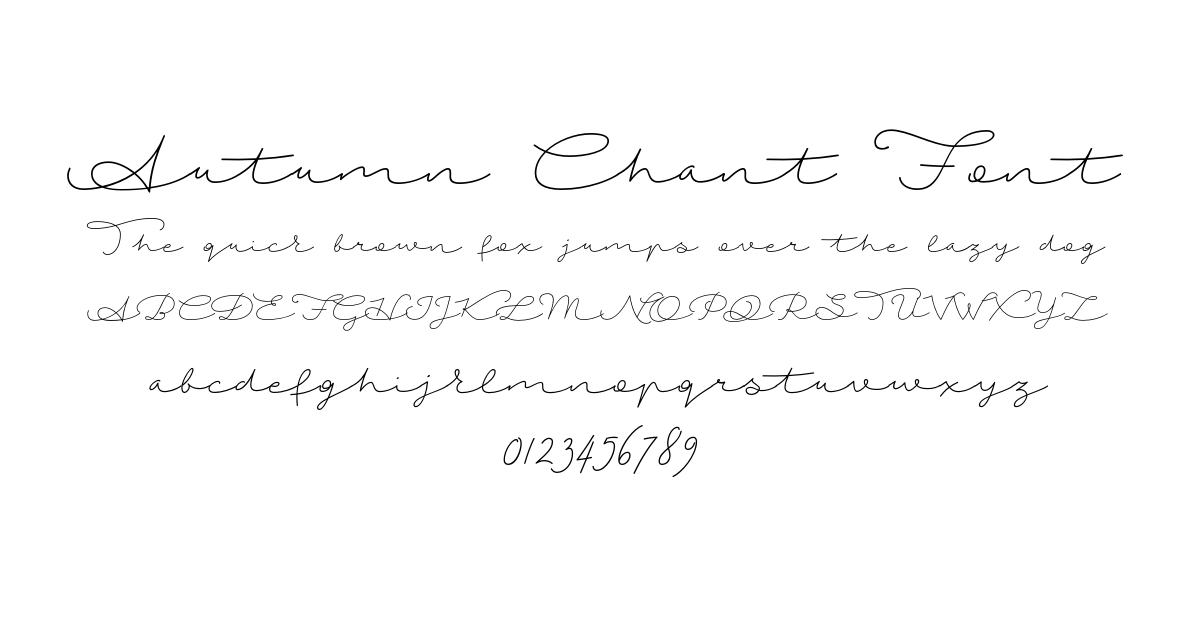 Autumn Chant Font
The quick brown fox jumps over the lazy dog
ABCDEFGHIJKLMNOPQRSTUVWXYZ
abcdefghijklmnopqrstuvwxyz
0123456789